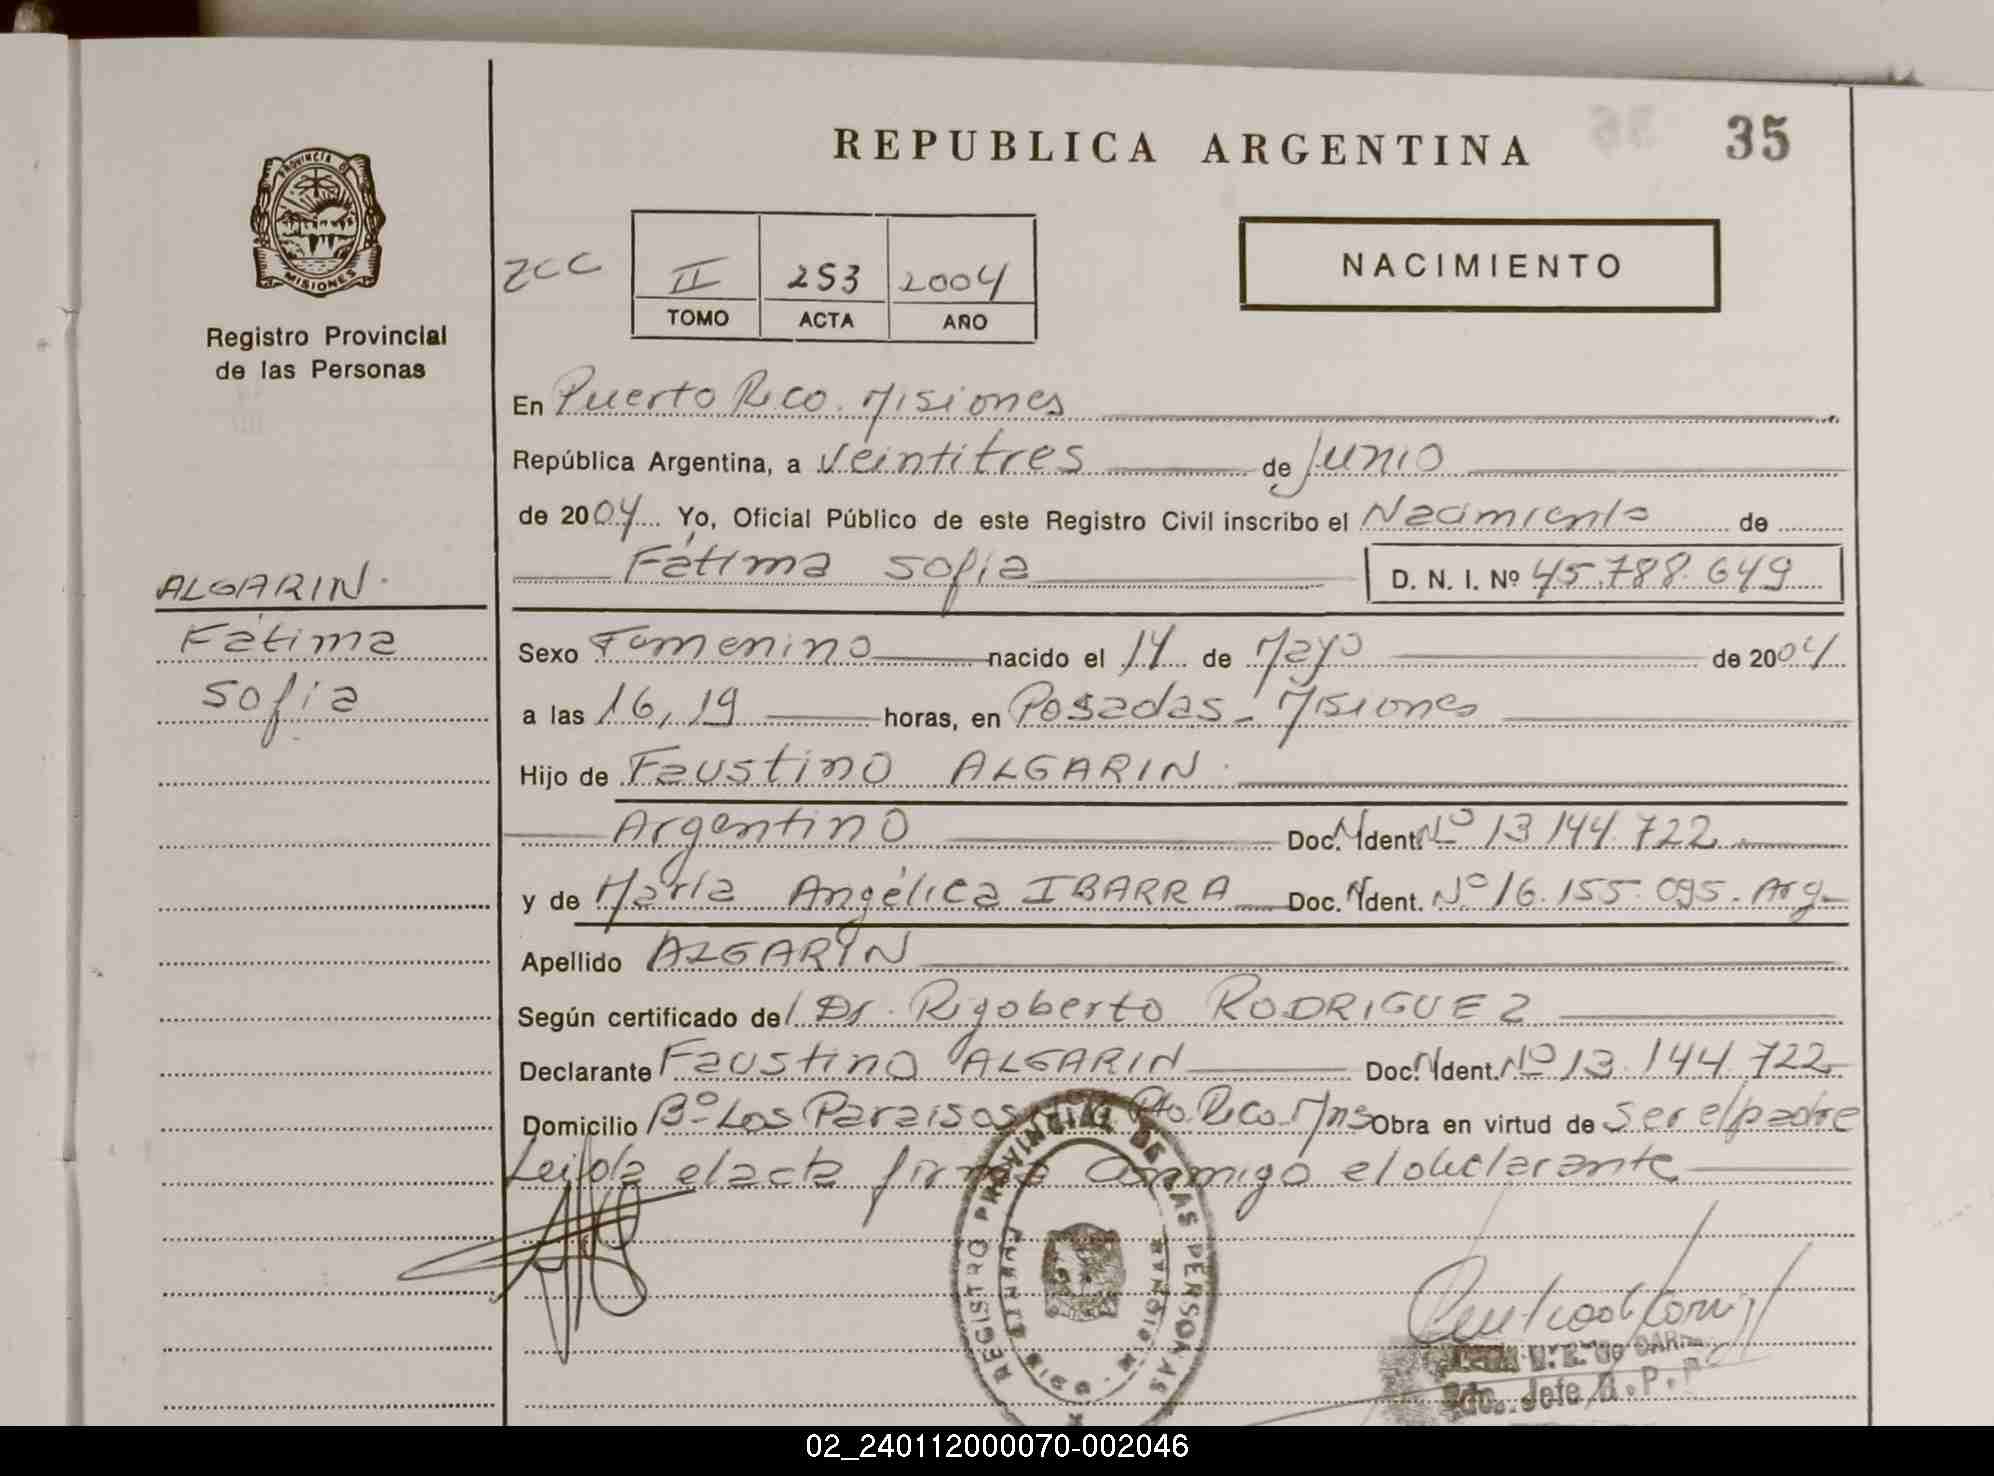 REPUBLICA ARGENTINA
35
PROVINCIA D
MISIONES
Registro Provincial
de las Personas
zcc
II 253 2004
TOMO ACTA AÑO
NACIMIENTO
En Puerto Rico. Misiones
República Argentina, a veintitres de Junio
de 2004 Yo, Oficial Público de este Registro Civil inscribo el Nacimiento de
Fátima Sofía
D. N. I. Nº 45.788.649
ALGARIN.
Fátima
Sofía
Sexo Femenino nacido el 14 de Mayo de 2004
a las 16,19 horas, en Posadas - Misiones
Hijo de Faustino ALGARIN.
Argentino Doc. N Ident. Nº 13.144.722
y de María Angélica IBARRA Doc. N Ident. Nº 16.155.095. Arg.
Apellido ALGARIN
Según certificado del Dr. Rigoberto RODRIGUEZ
Declarante Faustino ALGARIN Doc. N Ident. Nº 13.144.722
Domicilio Bº Los Paraisos Pto. Rico. Mns Obra en virtud de ser el padre
Leida el acta firma conmigo el declarante
REGISTRO PROVINCIAL DE LAS PERSONAS
MISIONES
Jefe R.P.P
02_240112000070-002046